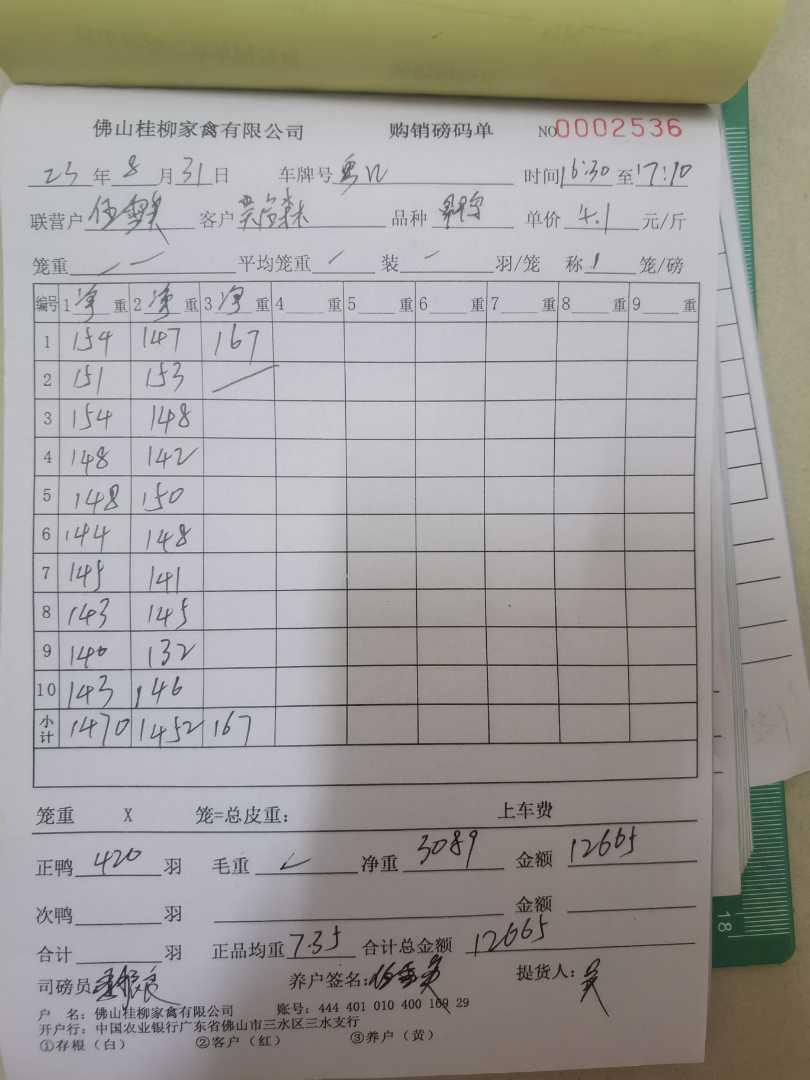 佛山桂柳家禽有限公司 购销磅码单 NO0002536
23年8月31日 车牌号 粤 时间16:30至17:10
联营户 伍 客户 森 品种 单价 4.1 元/斤
笼重 一 平均笼重 装 一 羽/笼 称 1 笼/磅
编号 1净重 2净重 3净重 4重 5重 6重 7重 8重 9重
1 154 147 167
2 151 153
3 154 148
4 148 142
5 148 150
6 144 148
7 145 141
8 143 145
9 140 132
10 143 146
小计 1470 1452 167
笼重 X 笼=总皮重: 上车费
正鸭 420 羽 毛重 净重 3089 金额 12665
次鸭 羽 金额
合计 羽 正品均重 7.35 合计总金额 12665
司磅员: 养户签名: 伍 提货人: 吴
户 名: 佛山桂柳家禽有限公司 账号: 444 401 010 400 169 29
开户行: 中国农业银行广东省佛山市三水区三水支行
①存根（白） ②客户（红） ③养户（黄）
18